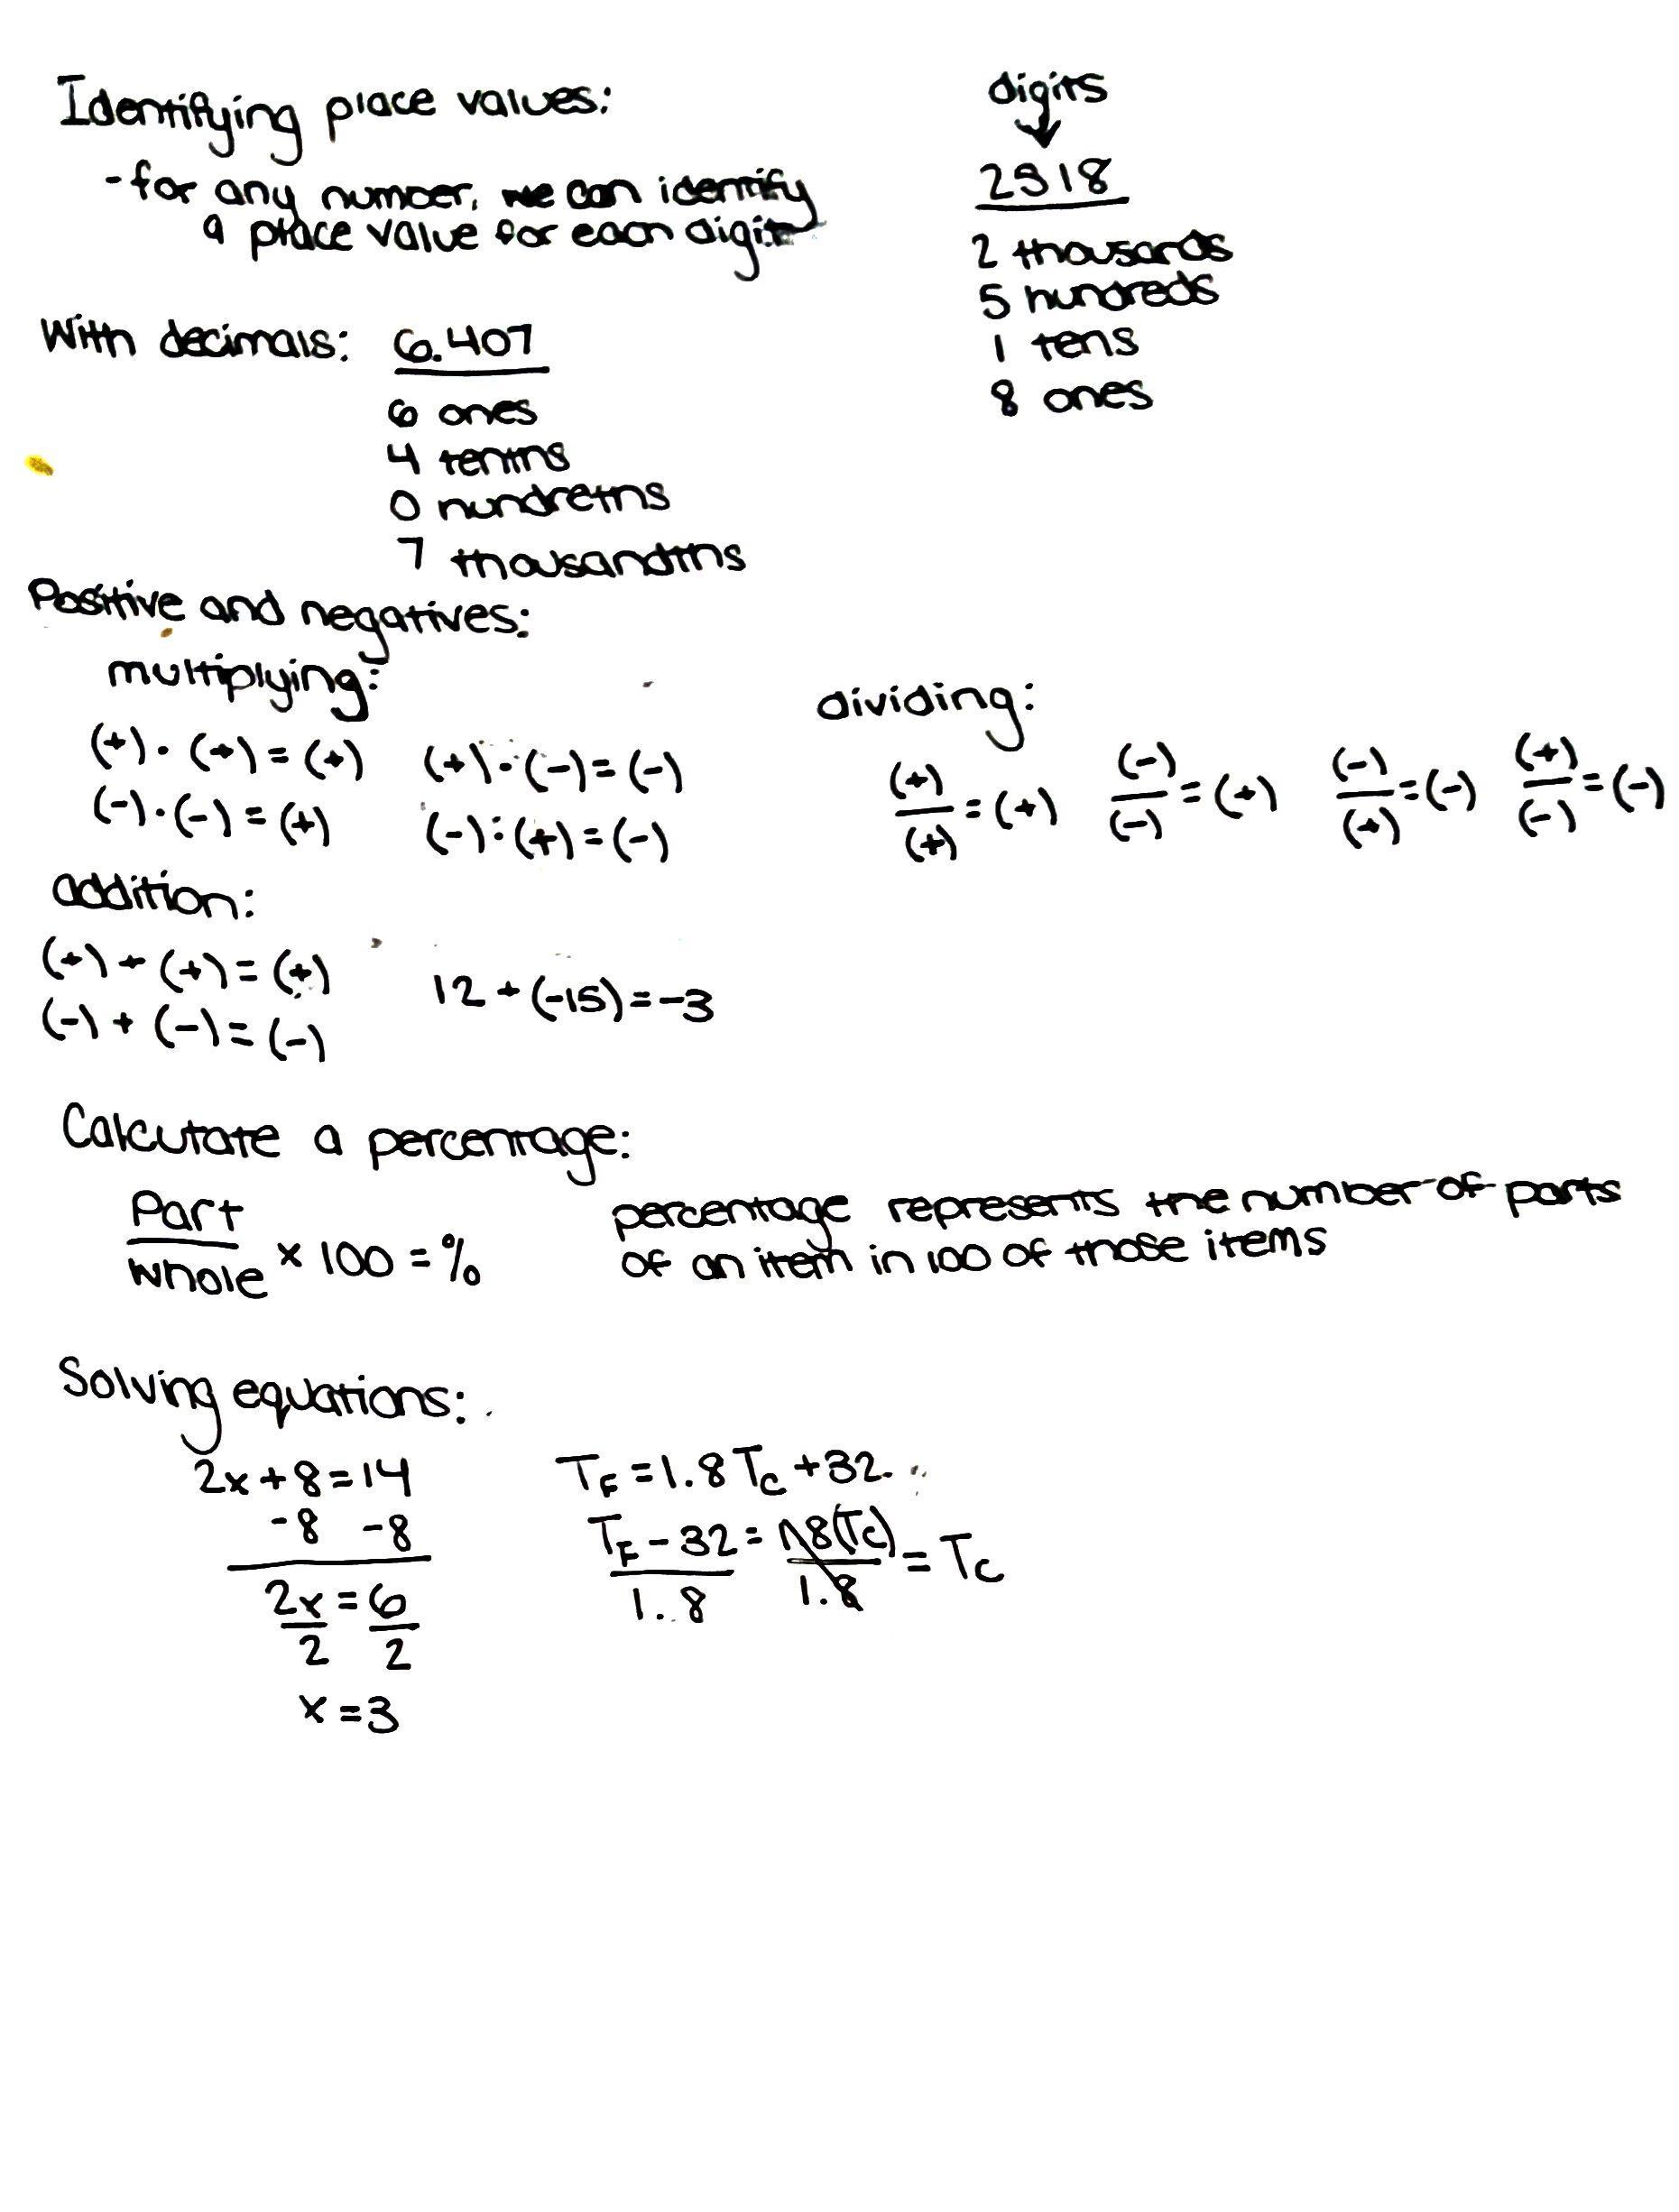 Identifying place values:
-for any number, we can identify
a place value for each digit
digits
2518
2 thousands
5 hundreds
1 tens
8 ones
With decimals: 6.407
6 ones
4 tenths
0 hundreths
7 thousandths
Positive and negatives:
multiplying:
(+)·(+)=(+) (+)·(-)=(-)
(-)·(-)=(+) (-):(+)=(-)
dividing:
(+)/(+)=(+) (-)/(-)=(+) (-)/(+)=(-) (+)/(-)=(-)
addition:
(+)+(+)=(+)
(-)+(-)=(-)
12+(-15)=-3
Calculate a percentage:
Part/whole × 100 = %
percentage represents the number of parts
of an item in 100 of those items
Solving equations:
2x+8=14
-8 -8
2x/2=6/2
x=3
T_F=1.8T_C+32
T_F-32/1.8=1.8(T_C)/1.8=T_C